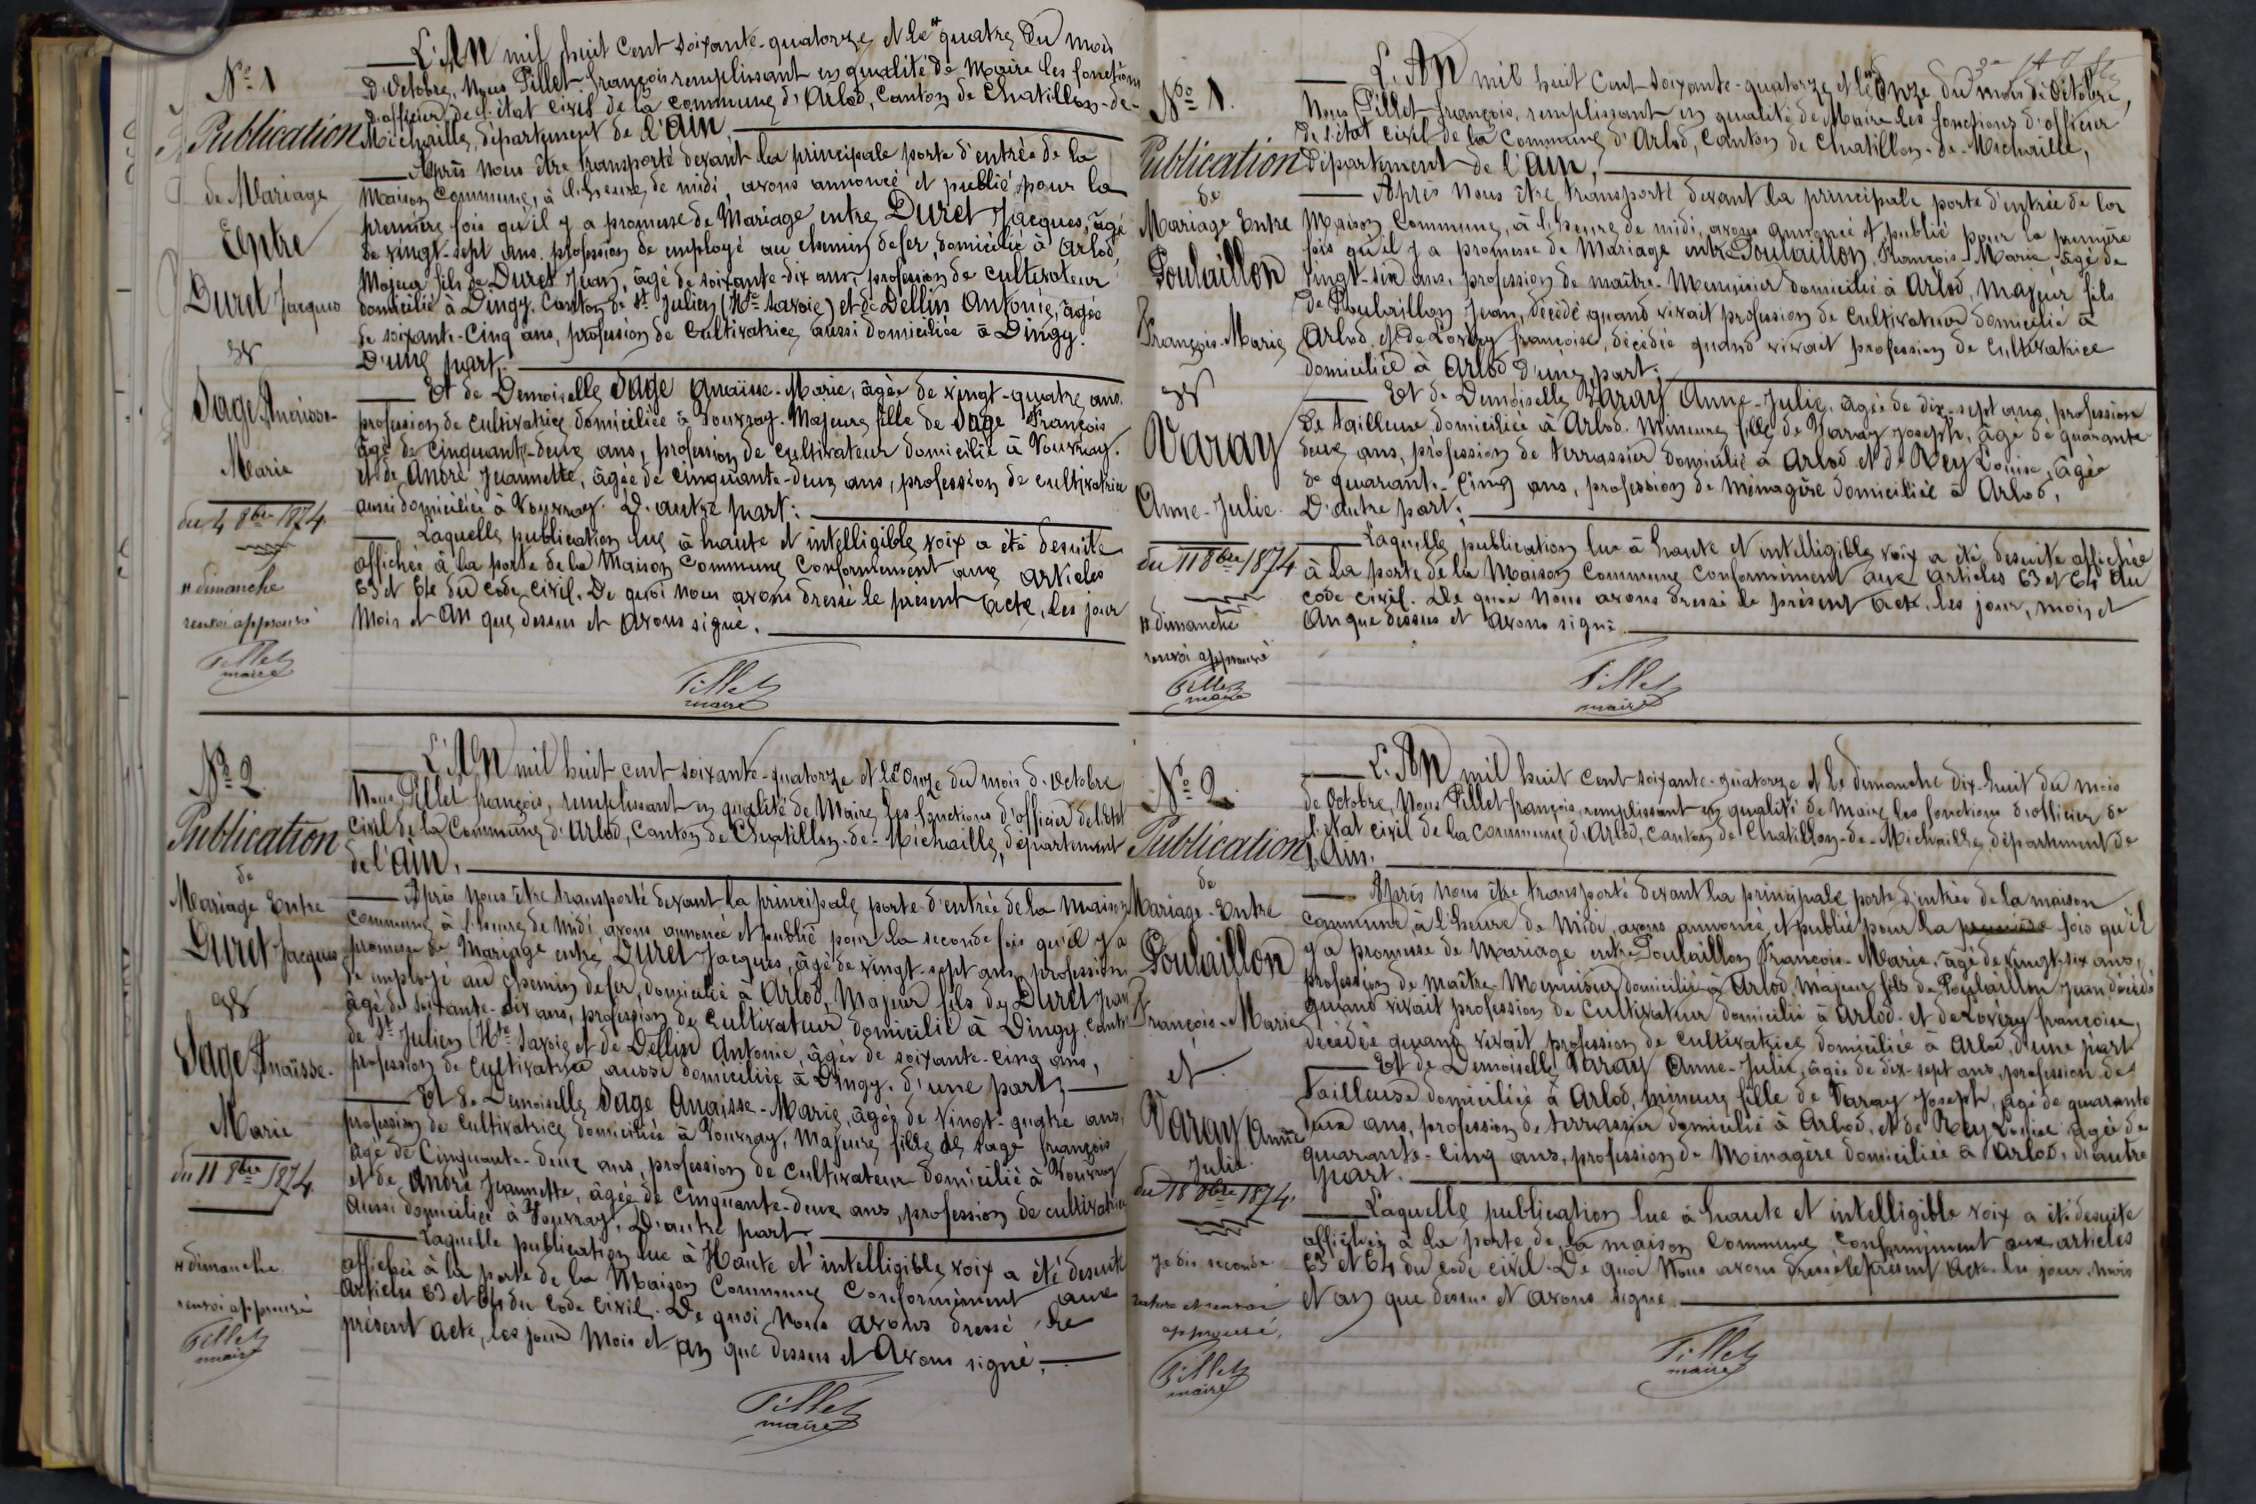 N° 1
Publication
de Mariage
Entre
Duret Jacques
&
Sage Anaïsse-
Marie
du 4 8bre 1874.
" dimanche
renvoi approuvé
Pillet
maire
L'AN mil huit cent soixante-quatorze et le " quatre du mois
d'Octobre, Nous Pillet françois remplissant en qualité de Maire les fonctions
d'officier de l'état civil de la commune d'Arlod, Canton de Chatillon-de-
Michaille, département de l'Ain.
Après nous être transporté devant la principale porte d'entrée de la
Maison Commune, à l'heure de midi, avons annoncé et publié pour la
première fois qu'il y a promesse de Mariage entre Duret Jacques, âgé
de vingt-sept ans, profession de employé au chemin de fer, domicilié à Arlod,
Majeur fils de Duret Jean, âgé de soixante-dix ans, profession de cultivateur
domicilié à Dingy. Canton de St. Julien (Hte Savoie) et de Dellin Antonie, âgée
de soixante-cinq ans, profession de Cultivatrice, aussi domiciliée à Dingy.
D'une part.
Et de Demoiselle Sage Anaïsse-Marie, âgée de vingt-quatre ans.
profession de cultivatrice domiciliée à Vouvray. Majeure fille de Sage François
âgé de cinquante-deux ans, profession de cultivateur domicilié à Vouvray.
et de André Jeannette, âgée de cinquante-deux ans, profession de cultivatrice
aussi domiciliée à Vouvray. D'autre part.
Laquelle publication lue à haute et intelligible voix a été desuite
affichée à la porte de la Maison Commune Conformément aux Articles
63 et 64 du Code Civil. De quoi nous avons dressé le présent Acte, les jour
Mois et AN que dessus et avons signé.
Pillet
maire
N° 2
Publication
de
Mariage Entre
Duret Jacques
&
Sage Anaïsse-
Marie
du 11 8bre 1874.
" dimanche
renvoi approuvé
Pillet
maire
L'AN mil huit cent soixante-quatorze et le " Onze du mois d'Octobre
Nous Pillet françois, remplissant en qualité de Maire les fonctions d'officier de l'Etat
Civil de la Commune d'Arlod, Canton de Chatillon-de-Michaille, département
de l'Ain.
Après nous être transporté devant la principale porte d'entrée de la Maison
Commune à l'heure de Midi, avons annoncé et publié pour la seconde fois qu'il y a
promesse de Mariage entre Duret Jacques, âgé de vingt-sept ans, profession
de employé au chemin de fer, domicilié à Arlod, Majeur fils de Duret Jean
âgé de soixante-dix ans, profession de Cultivateur domicilié à Dingy. Canton
de St. Julien (Hte Savoie) et de Dellin Antonie, âgée de soixante-cinq ans,
profession de Cultivatrice aussi domiciliée à Dingy. d'une part,
Et de Demoiselle Sage Anaïsse-Marie, âgée de vingt-quatre ans,
profession de Cultivatrice domiciliée à Vouvray, Majeure, fille de Sage François
âgé de Cinquante-deux ans, profession de Cultivateur domicilié à Vouvray
et de André Jeannette, âgée de Cinquante-deux ans, profession de cultivatrice
aussi domiciliée à Vouvray. D'autre part.
Laquelle publication lue à Haute et intelligible voix a été desuite
affichée à la porte de la Maison Commune Conformément aux
Articles 63 et 64 du Code Civil. De quoi Nous avons dressé le
présent acte, les jour Mois et an que dessus et Avons signé.
Pillet
maire
N° 1.
Publication
de
Mariage Entre
Poulaillon
François-Marie
&
Varay
Anne-Julie.
du 11 8bre 1874
" dimanche
renvoi approuvé
Pillet
maire
L'AN mil huit Cent soixante-quatorze et le " Onze du mois d'Octobre,
Nous Pillet françois, remplissant en qualité de Maire les fonctions d'officier
de l'état Civil de la Commune d'Arlod, Canton de Chatillon-de-Michaille,
Département de l'Ain,
Après nous être transporté devant la principale porte d'entrée de la
Maison Commune, à l'heure de midi, avons annoncé et publié pour la première
fois qu'il y a promesse de Mariage entre Poulaillon, François-Marie, âgé de
vingt-six ans, profession de maître-Menuisier domicilié à Arlod, Majeur fils
de Poulaillon Jean, décédé quand vivait profession de Cultivateur domicilié à
Arlod, et de Lovéry françoise, décédée quand vivait profession de Cultivatrice
domiciliée à Arlod d'une part.
Et de Demoiselle Varay Anne-Julie, âgée de dix-sept ans, profession
de tailleuse domiciliée à Arlod. Mineure fille de Varay Joseph, âgé de quarante
deux ans, profession de terrassier domicilié à Arlod et de Rey Louise, âgée
de quarante-Cinq ans, profession de Ménagère domiciliée à Arlod,
D'autre part.
Laquelle publication lue à haute et intelligible voix a été desuite affichée
à la porte de la Maison Commune Conformément aux Articles 63 et 64 du
Code Civil. De quoi Nous avons dressé le présent Acte, les jour, mois et
An que dessus et avons signé.
Pillet
maire
N° 2.
Publication
de
Mariage-Entre
Poulaillon
François-Marie
et
Varay Anne
Julie.
du 18 8bre 1874.
je dis seconde
rature et renvoi
approuvé,
Pillet
maire
L'AN mil huit Cent soixante-quatorze et le dimanche dix-huit du mois
de Octobre, Nous Pillet françois, remplissant en qualité de Maire les fonctions d'officier de
l'état civil de la Commune d'Arlod, canton de Chatillon-de-Michaille, département de
l'Ain.
Après nous être transporté devant la principale porte d'entrée de la maison
Commune, à l'heure de Midi, avons annoncé et publié pour la première fois qu'il
y a promesse de Mariage entre Poulaillon François-Marie, âgé de vingt-six ans,
profession de maître Menuisier domicilié à Arlod, Majeur fils de Poulaillon Jean, décédé
quand vivait profession de Cultivateur domicilié à Arlod. et de Lovéry françoise,
décédée quand vivait profession de Cultivatrice domiciliée à Arlod, d'une part
Et de Demoiselle Varay Anne-Julie, âgée de dix-sept ans, profession de
Tailleuse domiciliée à Arlod, mineure fille de Varay Joseph, âgé de quarante
deux ans, profession de terrassier domicilié à Arlod. et de Rey Louise âgée de
quarante-cinq ans, profession de Ménagère domiciliée à Arlod, d'autre
part.
Laquelle publication lue à haute et intelligible voix a été desuite
affichée à la porte de la maison Commune Conformément aux articles
63 et 64 du Code civil. De quoi Nous avons dressé le présent Acte les jour, mois
et an que dessus et avons signé.
Pillet
maire